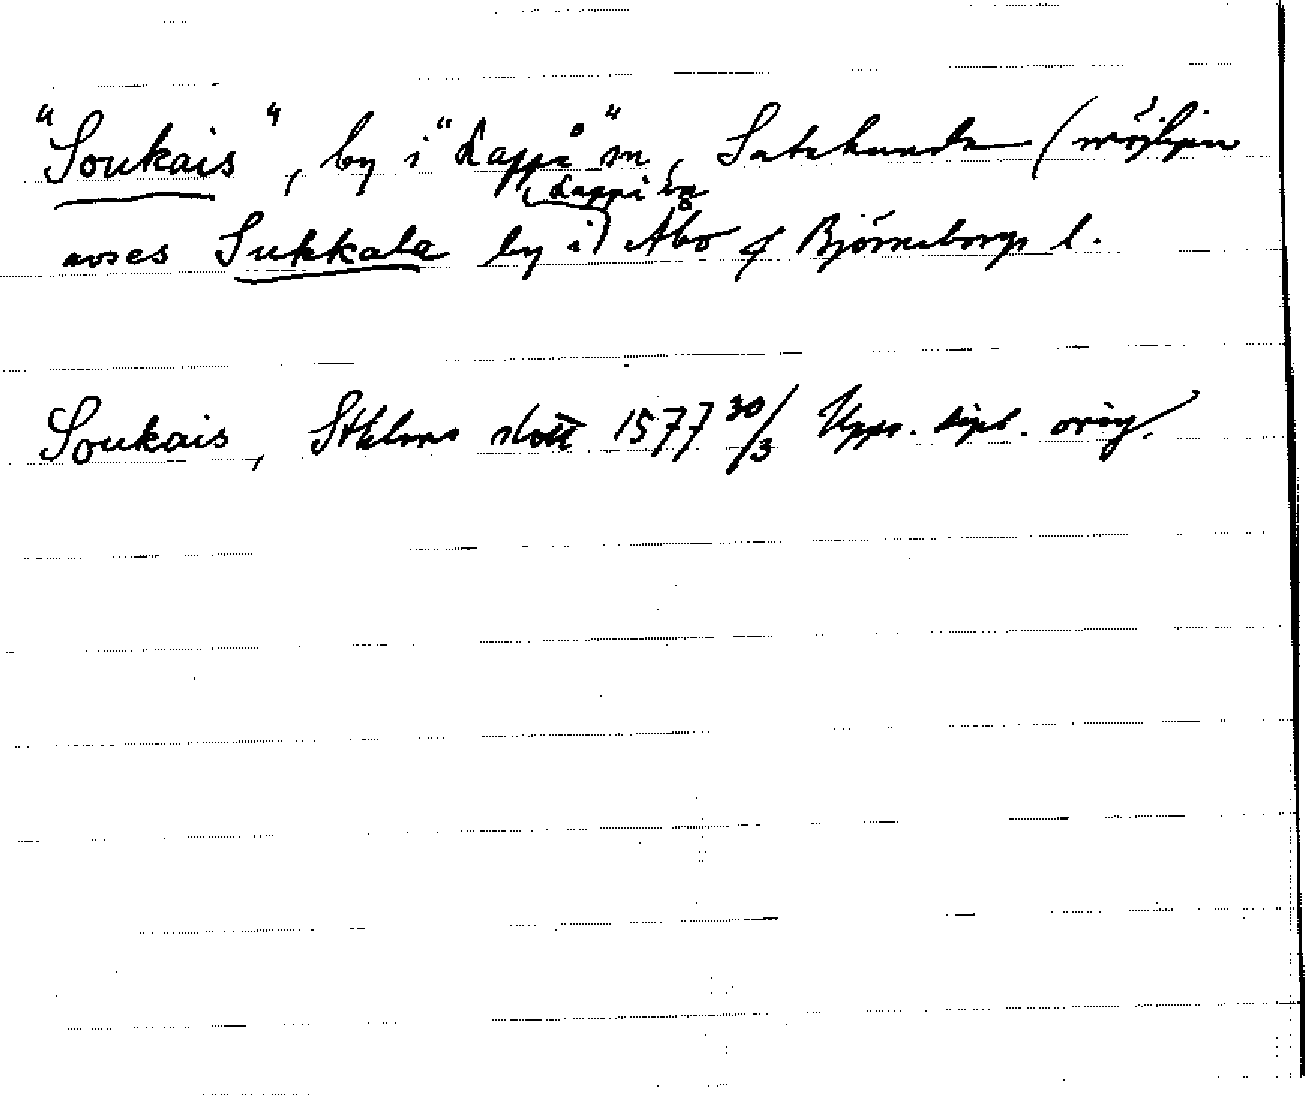 "Soukais", by i "Lappå" sn, Satakunda (möjligen
Lappi sn
avses Sukkala by i) Åbo o Björneborgs l.
Soukais, Sthlms slott 1577 30/3 Upps. dipl. orig.